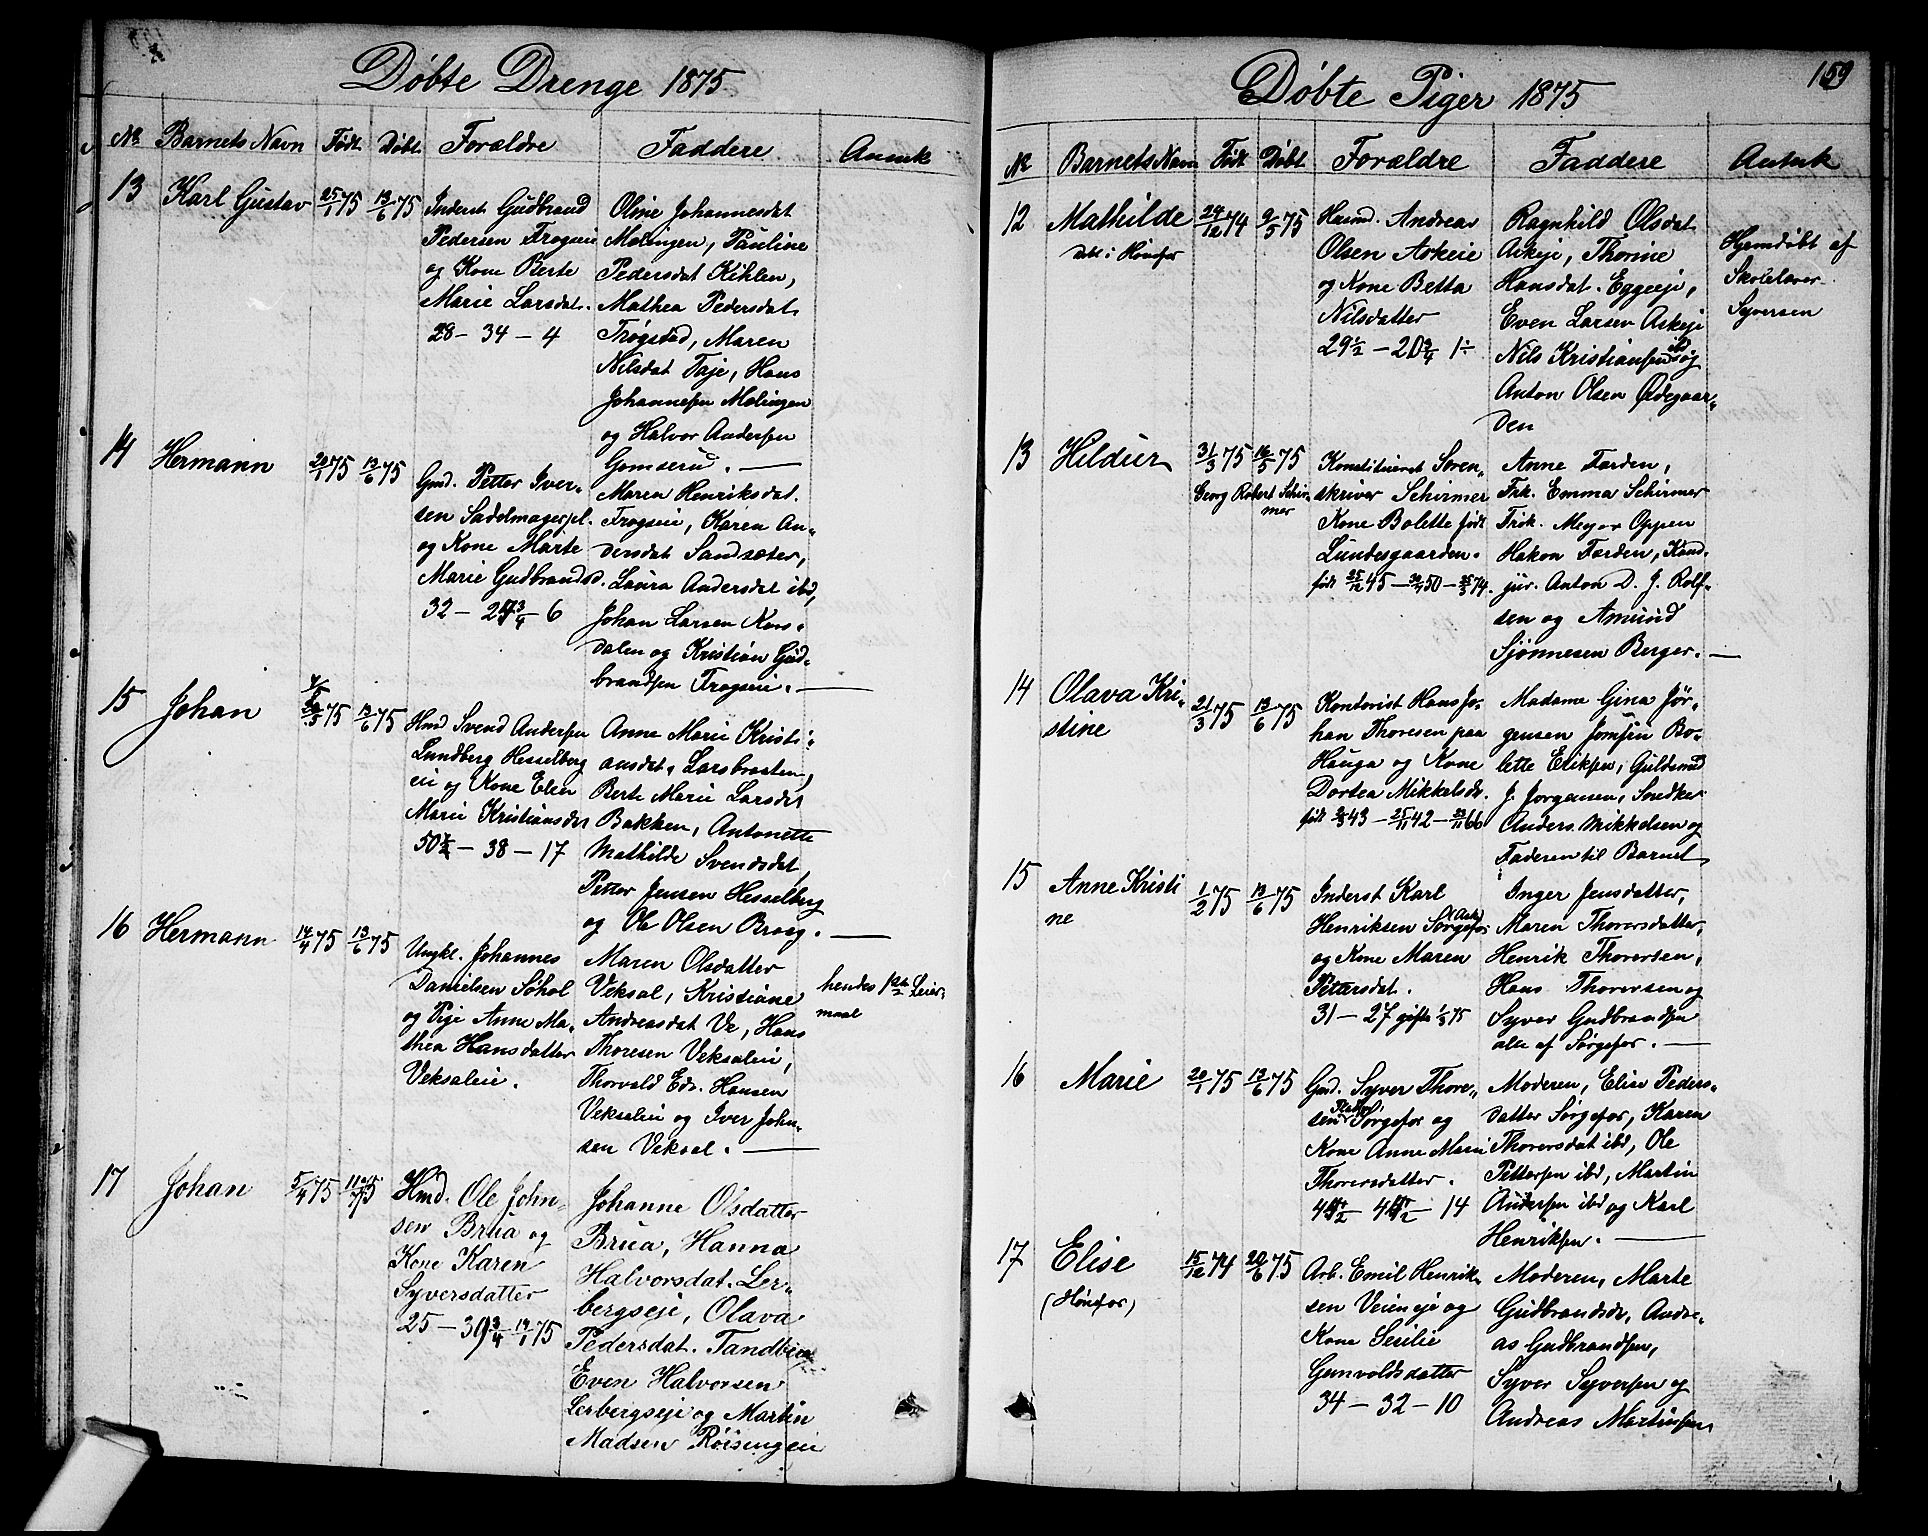 Døbte Drenge 1875
№ Barnets Navn Født Døbt Forældre Faddere Anmk
13 Karl Gustav 25/1 75 13/6 75
Inderst Gudbrand
Pedersen Frogeie
og Kone Berte
Marie Larsdat.
28 - 34 - 4
Oline Johannesdat
Molingen, Pauline
Pedersdat Kihlen,
Mathea Pedersdat
Trøgstad, Maren
Nilsdat Faje, Hans
Johannesen Molingen
og Halvor Andersen
Gomserud.
14 Hermann 20/1 75 13/6 75
Gmd. Petter Iver-
sen Sadelmagerpl.
og Kone Marte
Marie Gudbrandsd.
32 - 27 3/4 - 6
Maren Henriksdat.
Frogeie, Karen An-
dersdat Sandsæter,
Laura Andersdat ibd,
Johan Larsen Kors-
dalen og Kristian Gud-
brandsen Frogeie.
15 Johan 75 13/6 75
Hmd Svend Andersen
Lundberg Hesselberg
eie og Kone Elen
Marie Kristiansdat
50 1/2 - 38 - 17
Anne Marie Kristi-
ansdat. Larsbraaten,
Berte Marie Larsdat
Bakken, Antonette
Mathilde Svendsdat,
Petter Jensen Hesselberg
og Ole Olsen Braag.
16 Hermann 14/4 75 13/6 75
Ungkl. Johannes
Danielsen Sohol
og Pige Anne Ma-
thea Hansdatter
Veksaleie.
Maren Olsdatter
Veksal, Kristiane
Andreasdat Ve, Hans
Thoresen Veksaleie,
Thorvald Edv. Hansen
Veksaleie og Iver John-
sen Veksal.
hendes 1ste Leier-
maal
17 Johan 5/4 75 11/7 75
Hmd. Ole John-
sen Brua og
Kone Karen
Syversdatter
25 - 30 3/4 - 14/1 75
Johanne Olsdatter
Brua, Hanna
Halvorsdat. Ler-
bergseje, Olava
Pedersdat. Tandberg
Even Halvorsen
Lerbergseje og Martin
Madsen Röisingeie
Døbte Piger 1875
159
№ Barnets Navn Født Døbt Forældre Faddere Anmk
12 Mathilde 24/12 74 9/5 75
døbt i Hønefos
Husmd. Andreas
Olsen Askeie
og Kone Betta
Nilsdatter
29 1/2 - 20 3/4 1 ÷
Ragnhild Olsdat
Askeje, Thorine
Hansdat. Eggeeje,
Even Larsen Askeje
Nils Kristiansen ibd og
Anton Olsen Ødegaar-
den
Hjemdöbt af
Skolelærer
Syversen
13 Hildur 31/3 75 16/5 75
Georg Robert Schir-
mer
Konstitueret Soren-
skriver Schirmer
Kone Bolette født
Lundesgaarden.
født 25/12 45 - 50 - 74.
Anne Farden,
Frk. Emma Schirmer
Frk. Meyer Oppen
Hakon Farden, Kand.
jur. Anton D. J. Rolf-
sen og Amund
Sjønnesen Berger.
14 Olava Kri-
stine 21/3 75 13/6 75
Kontorist Hans Jo-
han Thoresen paa
Hauga og Kone
Dortea Mikkelsdr.
født 43 - 25/11 42 - 66
Madame Gina Jør-
gensen Jomfru Bo-
lette Eriksen, Guldsmed
J. Jorgensen, Snedker
Anders Mikkelsen og
Faderen til Barnet
15 Anne Kristi
ne 1/2 75 13/6 75
Inderst Karl
Henriksen Sørgefos
og Kone Maren
Pettersdat.
31 - 27 gift 75
Inger Jensdatter,
Maren Thorersdatter,
Henrik Thorersen,
Hans Thorersen og
Syver Gudbrandsen
alle af Sørgefos.
16 Marie 20/1 75 13/6 75
Gmd. Syver Thore-
sen Sørgefos og
Kone Anne Marie
Thorersdatter.
14
Moderen, Elise Peders-
datter Sørgefos, Karen
Thorersdat ibd, Ole
Pettersen ibd, Martin
Andersen ibd og Karl
Henriksen.
17 Elise 15/12 74 20/6 75
(Hönefos)
Arb. Emil Henrik-
sen Veieneje og
Kone Secilie
Gunvoldsdatter
34 - 32 - 10
Moderen, Marte
Gudbrandsdr, Andre-
as Gudbrandsen,
Syver Syversen og
Andreas Martinsen